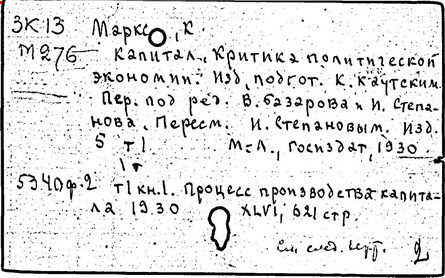 3К13 Маркс, К
М276 Капитал. Критика политической
экономии. Изд. подгот. К. Каутским.
Пер. под ред. В. Базарова и И. Степа-
нова. Пересм. И. Степановым. Изд.
5 т 1 М.-Л., Госиздат, 1930
1 т
5340ф.2 т1 кн.1. Процесс производства капита-
ла 1930 XLVI, 621 стр.
См след. карт. 2